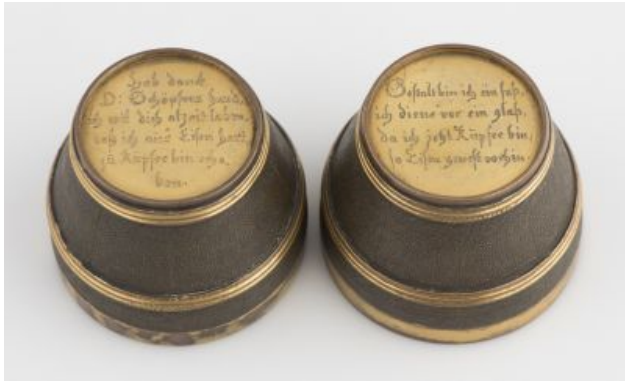 Hab danck
D: Schöpfers hand,
Ich wil dich alzeit loben,
daß ich aus Eisen hart,
zu Küpfer bin erho
ben.
Gestalt bin ich ein faß,
ich diene vor ein glaß,
da ich jetzt Küpfer bin,
so Eisen gewest vorhin.